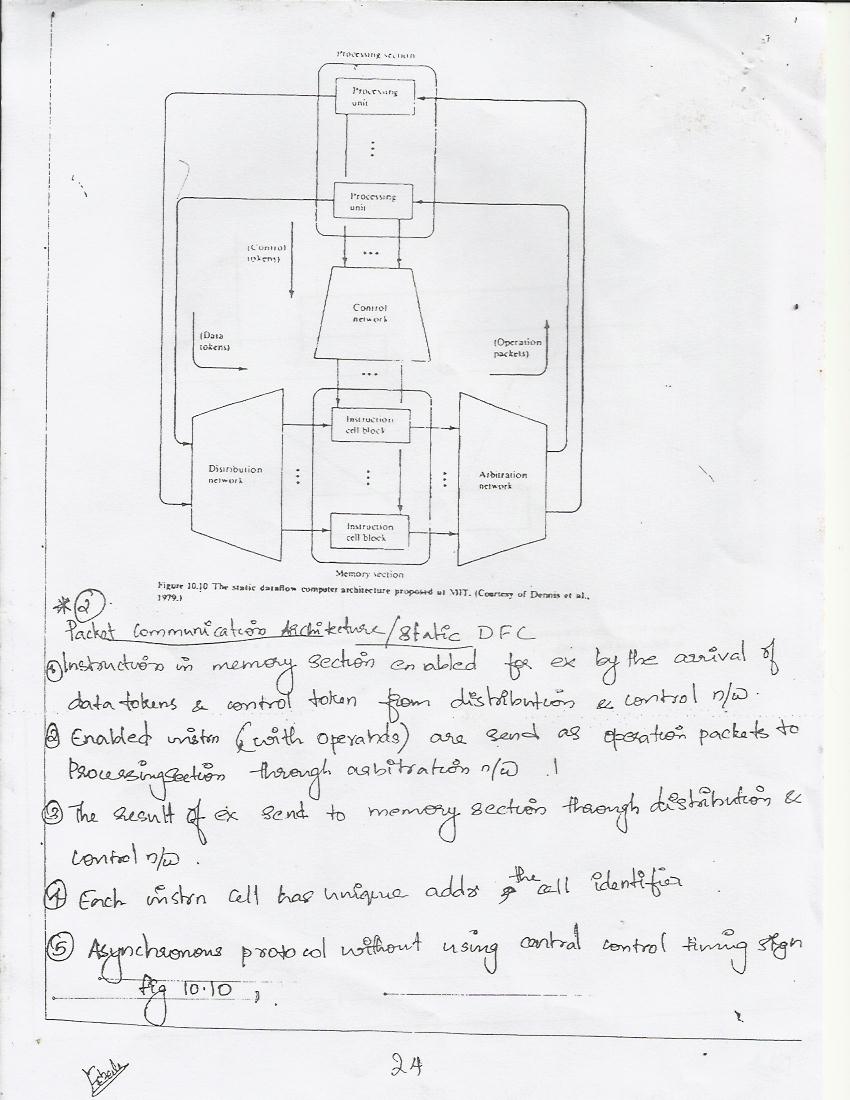 Processing section
Processing
unit
Processing
unit
(Control
tokens)
Control
network
(Data
tokens)
(Operation
packets)
Instruction
cell block
Distribution
network
Arbitration
network
Instruction
cell block
Memory section
Figure 10.10 The static dataflow computer architecture proposed at MIT. (Courtesy of Dennis et al.,
1979.)
* ②
Packet Communication Architecture/static DFC
① Instruction in memory section enabled for ex by the arrival of
data tokens & control token from distribution & control n/w.
② Enabled instrn (with operands) are send as operation packets to
Processing section through arbitration n/w.
③ The result of ex send to memory section through distribution &
control n/w.
④ Each instrn cell has unique addr the cell identifier
⑤ Asynchronous protocol without using central control timing sign
fig 10.10
24